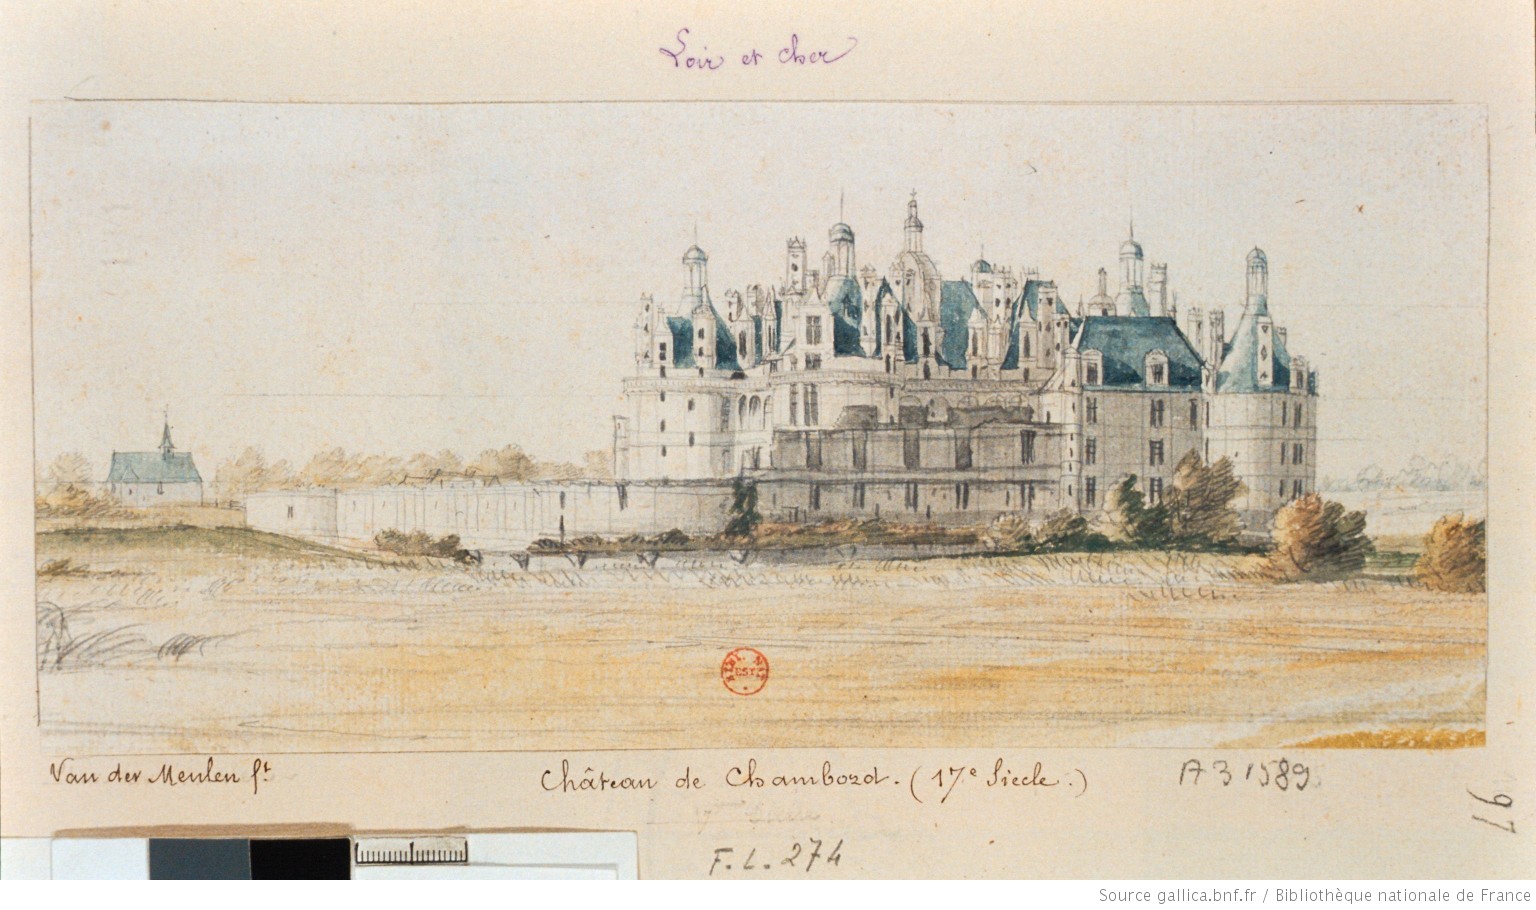 Loir et Cher
Van der Meulen ft
Château de Chambord. (17e Siecle.)
A 31589
97
F. L. 274
Source gallica.bnf.fr / Bibliothèque nationale de France